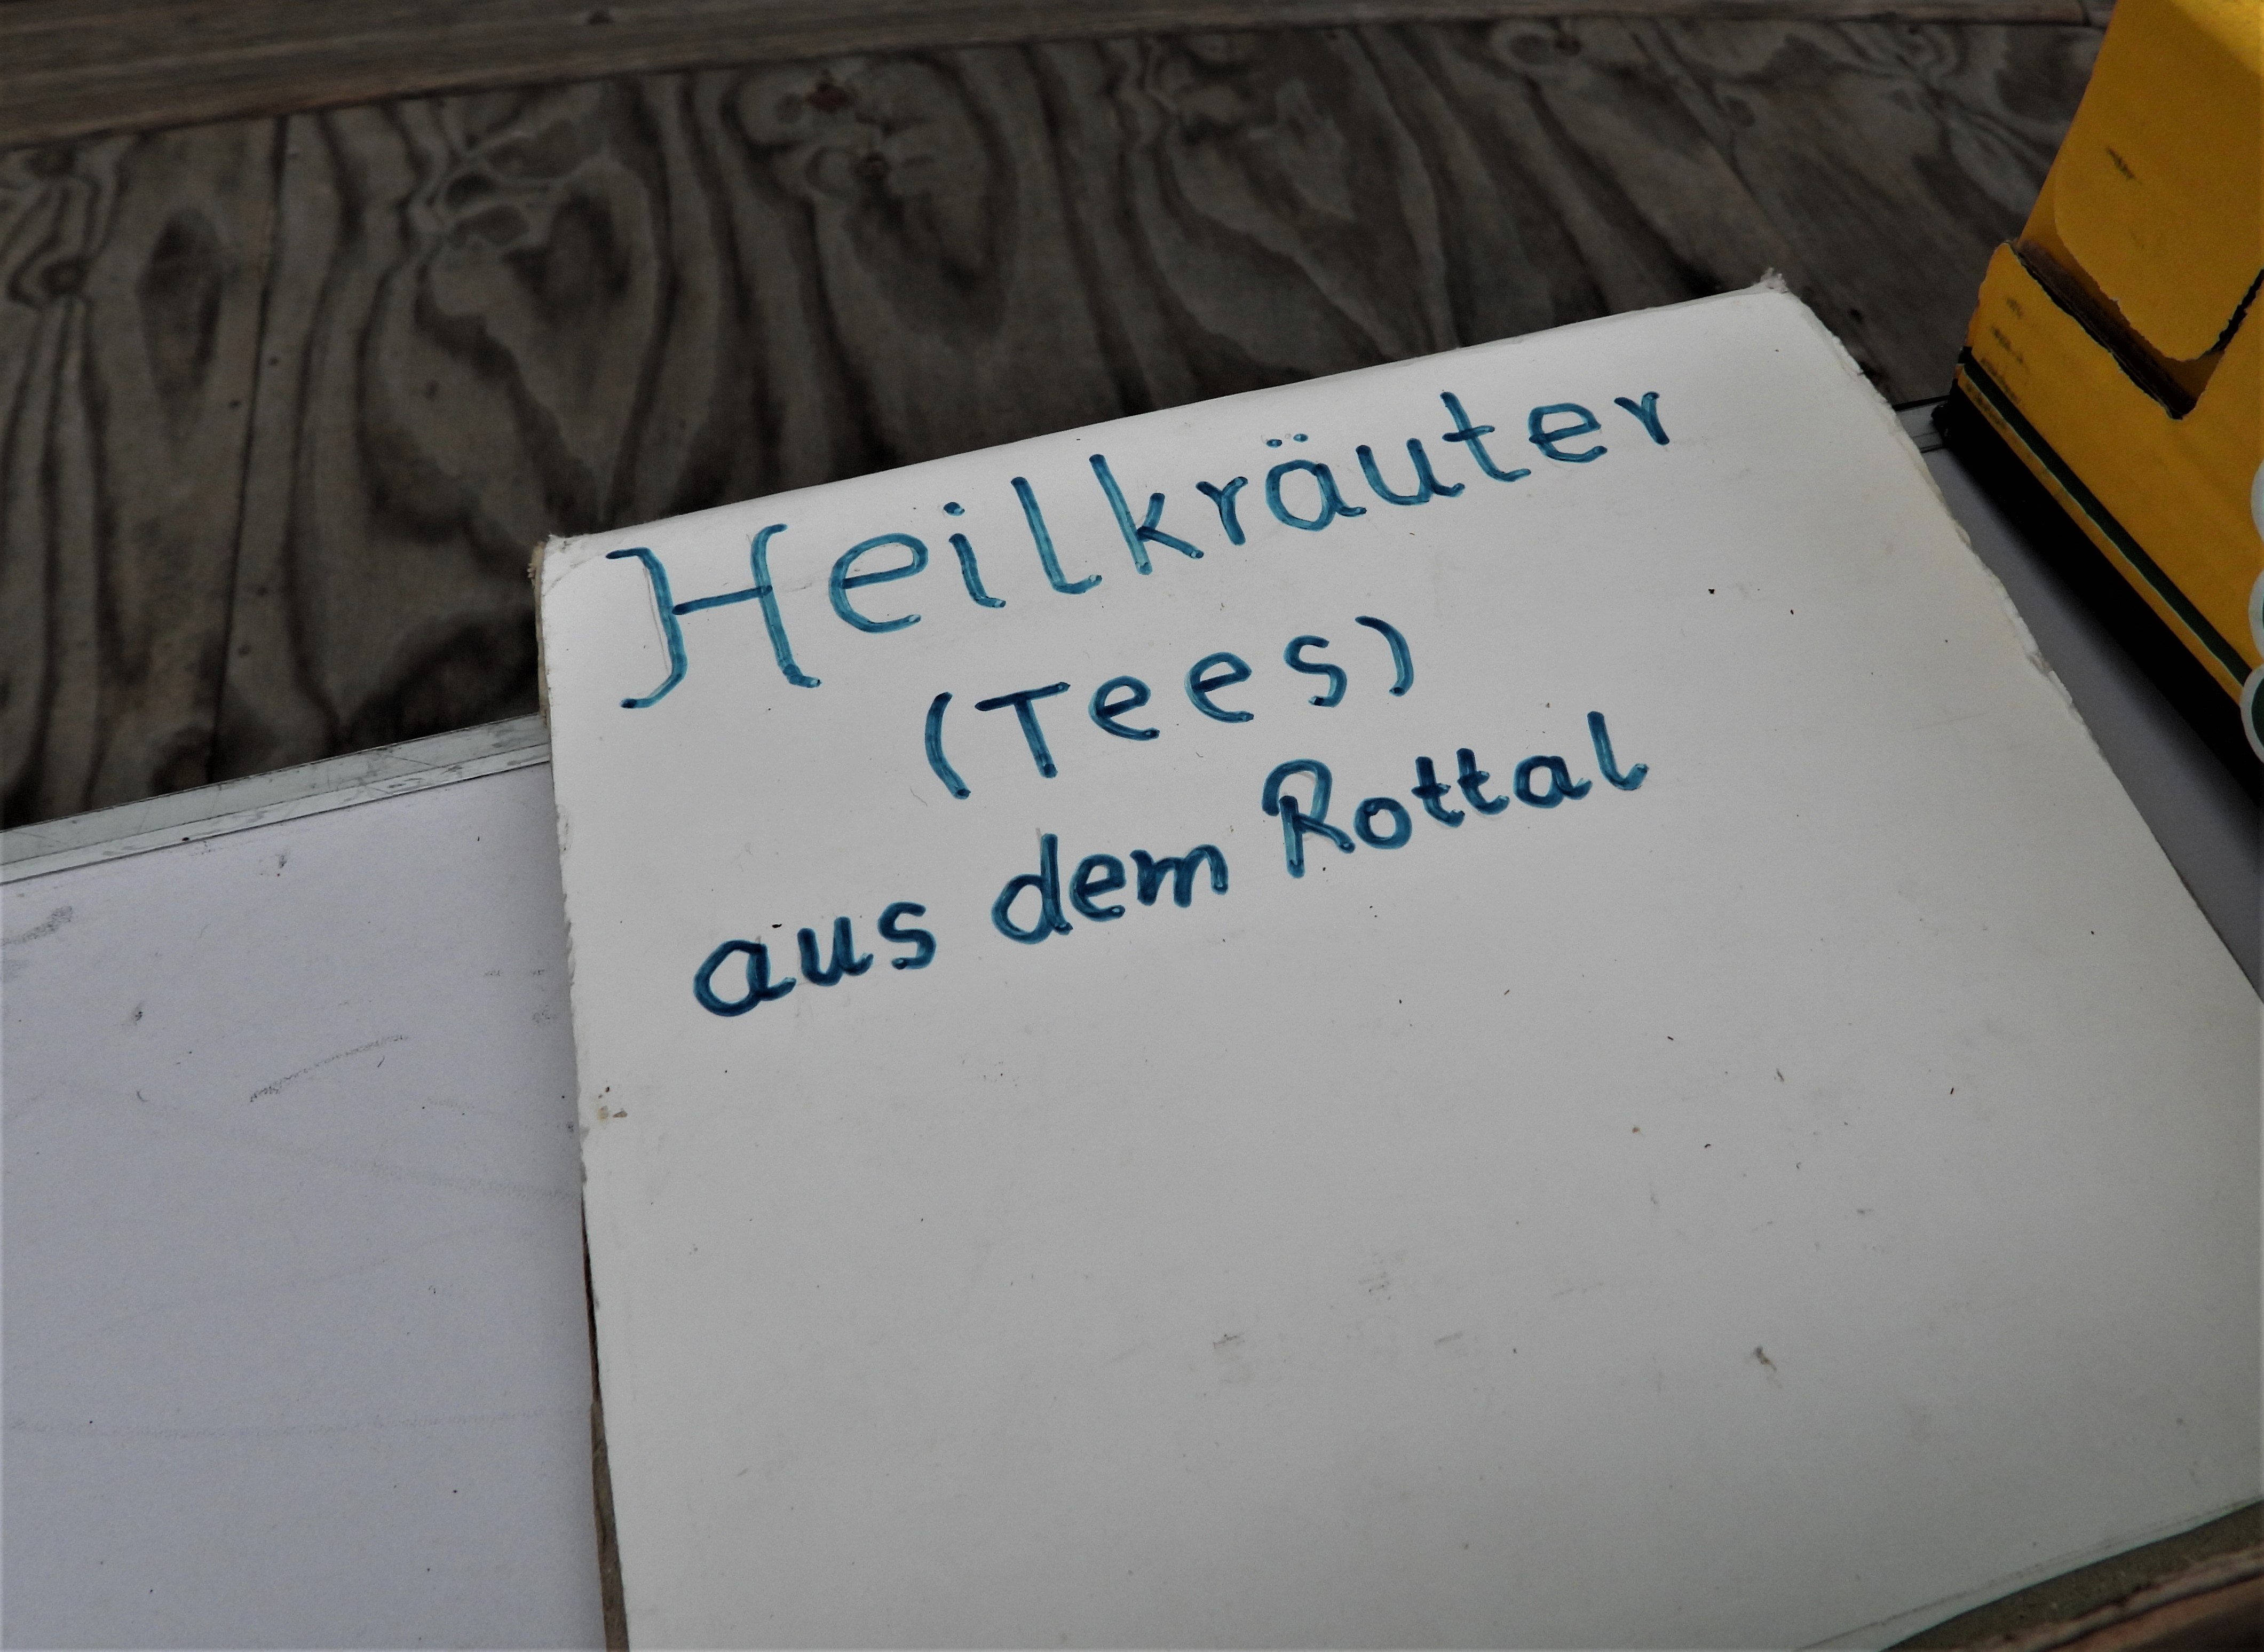 Heilkräuter
(Tees)
aus dem Rottal